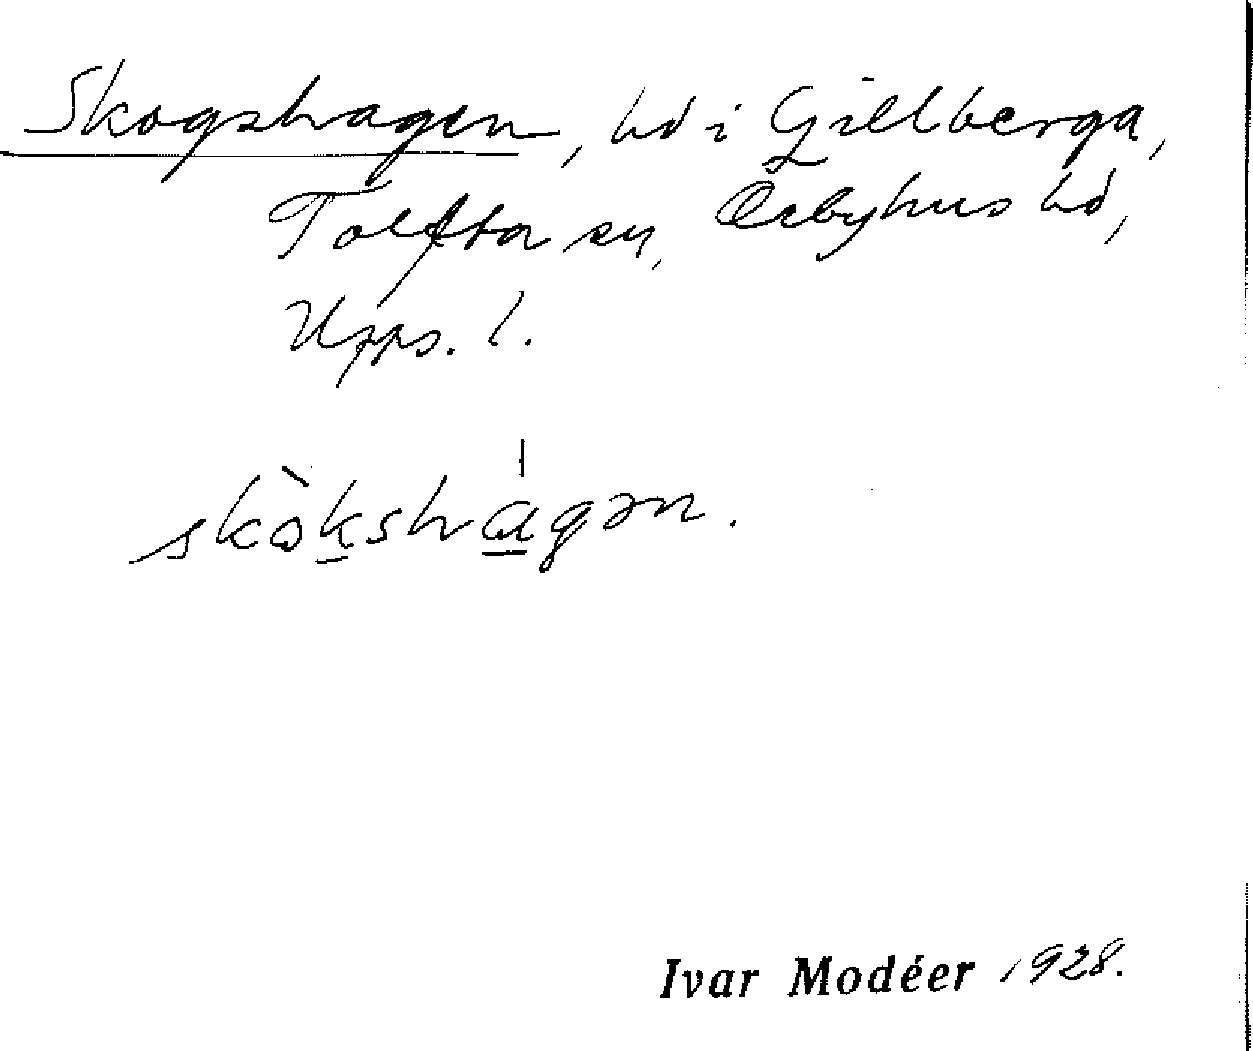 Skogshagen, hd i Gillberga,
Tolfta sn, Örbyhus hd,
Upps. l.
skòkshágən.
Ivar Modéer 1928.